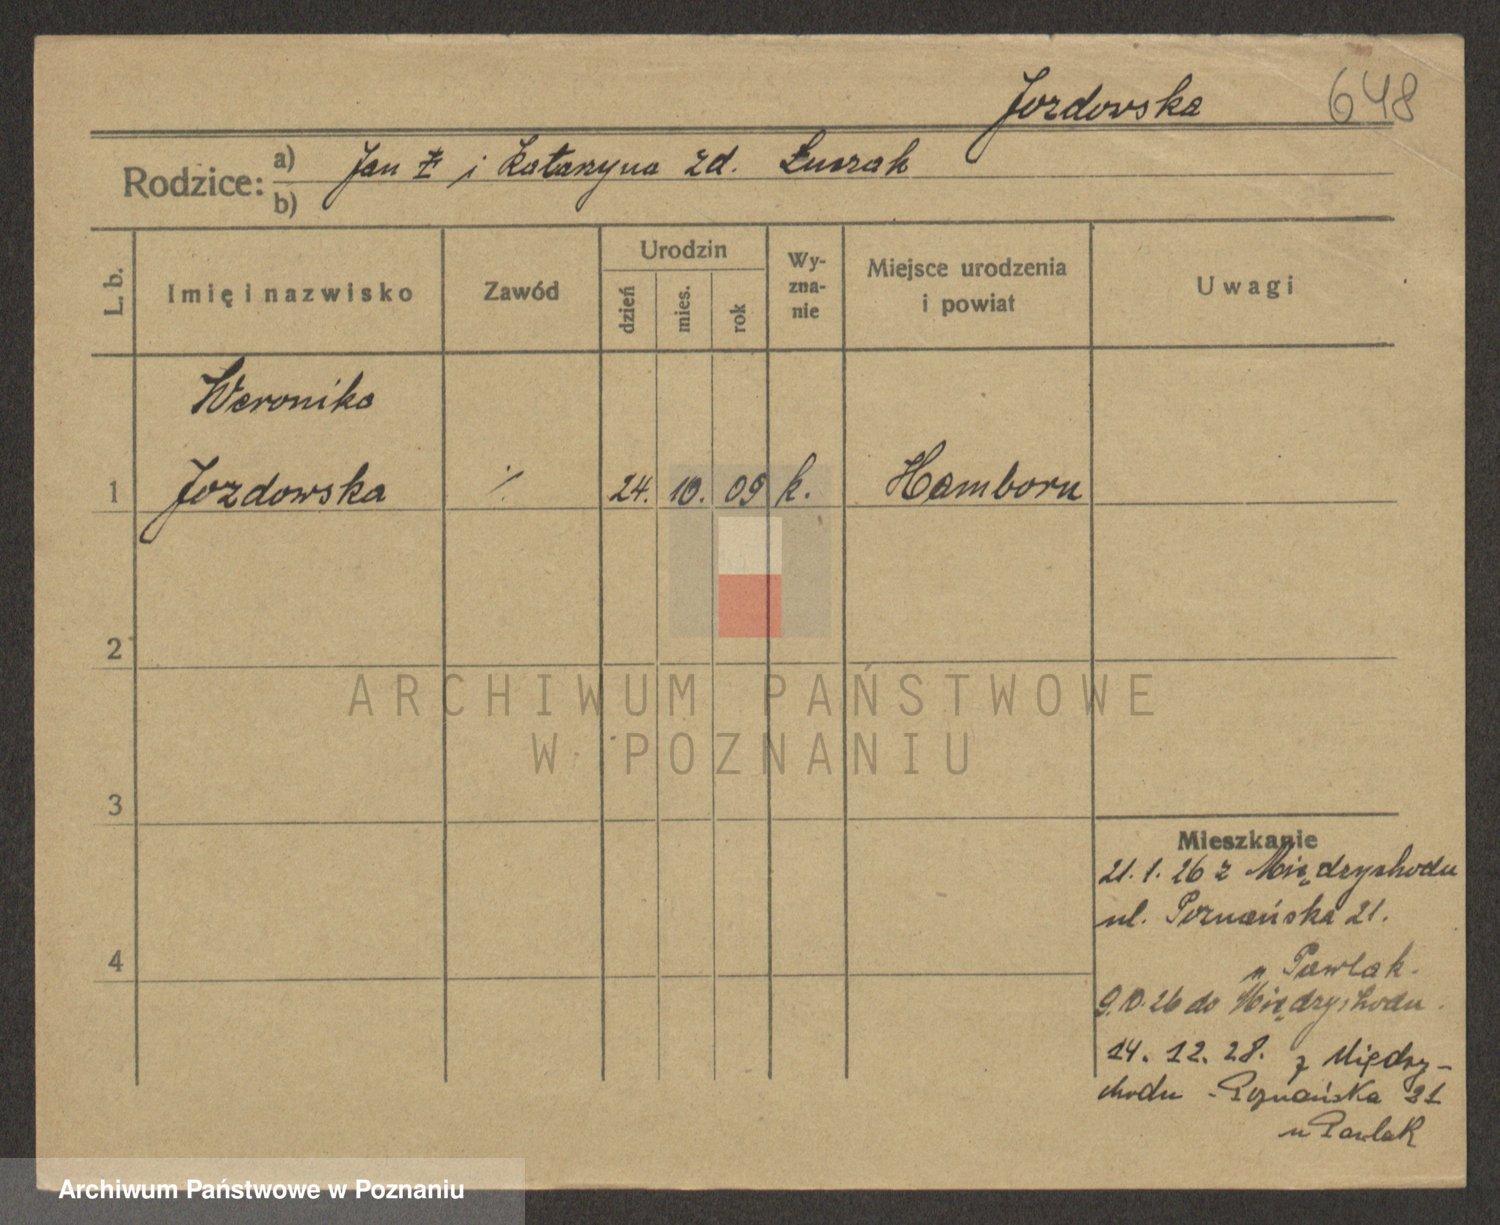 Jozdowska 648
Rodzice: a) Jan ‡ i Katarzyna zd. Łuszak
b)
L. b. Imię i nazwisko Zawód Urodzin dzień mies. rok Wy-zna-nie Miejsce urodzenia i powiat Uwagi
Weronika
1 Jozdowska ⁒ 24. 10. 09 k. Hamborn
2
3
4
Mieszkanie
21. 1. 26 z Międzychodu
ul. Poznańska 21.
u Pawlak.
9.10.26 do Międzychodu.
14. 12. 28. z Między-
chodu - Poznańska 21
u Pawlak
ARCHIWUM PAŃSTWOWE
W POZNANIU
Archiwum Państwowe w Poznaniu